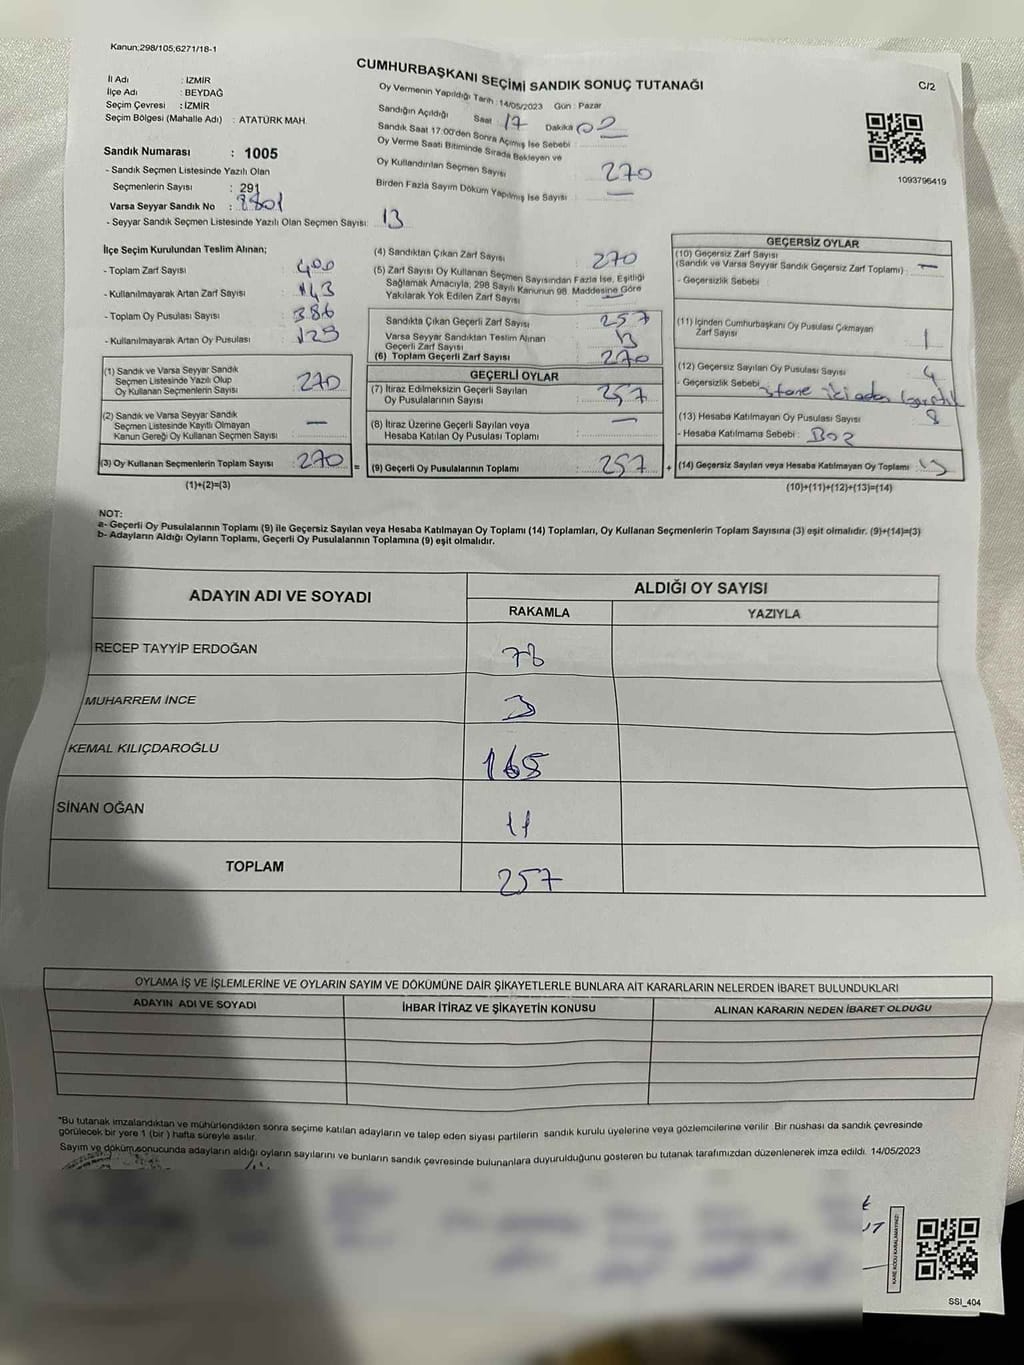 Kanun;298/105;6271/18-1
CUMHURBAŞKANI SEÇİMİ SANDIK SONUÇ TUTANAĞI
C/2
İl Adı : İZMİR
İlçe Adı : BEYDAĞ
Seçim Çevresi : İZMİR
Seçim Bölgesi (Mahalle Adı) : ATATÜRK MAH.
Oy Vermenin Yapıldığı Tarih : 14/05/2023 Gün : Pazar
Sandığın Açıldığı Saat : 17 Dakika 02
Sandık Saat 17:00'den Sonra Açılmış İse Sebebi :
Oy Verme Saati Bitiminde Sırada Bekleyen ve
Oy Kullandırılan Seçmen Sayısı 270
Birden Fazla Sayım Döküm Yapılmış İse Sayısı : —
1093796419
Sandık Numarası : 1005
- Sandık Seçmen Listesinde Yazılı Olan
Seçmenlerin Sayısı : 291
Varsa Seyyar Sandık No : 8801
- Seyyar Sandık Seçmen Listesinde Yazılı Olan Seçmen Sayısı: 13
İlçe Seçim Kurulundan Teslim Alınan;
- Toplam Zarf Sayısı : 400
- Kullanılmayarak Artan Zarf Sayısı : 143
- Toplam Oy Pusulası Sayısı : 386
- Kullanılmayarak Artan Oy Pusulası : 129
(1) Sandık ve Varsa Seyyar Sandık
Seçmen Listesinde Yazılı Olup
Oy Kullanan Seçmenlerin Sayısı : 270
(2) Sandık ve Varsa Seyyar Sandık
Seçmen Listesinde Kayıtlı Olmayan
Kanun Gereği Oy Kullanan Seçmen Sayısı : —
(3) Oy Kullanan Seçmenlerin Toplam Sayısı : 270 =
(1)+(2)=(3)
(4) Sandıktan Çıkan Zarf Sayısı : 270
(5) Zarf Sayısı Oy Kullanan Seçmen Sayısından Fazla İse, Eşitliği
Sağlamak Amacıyla, 298 Sayılı Kanunun 98. Maddesine Göre
Yakılarak Yok Edilen Zarf Sayısı : —
Sandıkta Çıkan Geçerli Zarf Sayısı : 257
Varsa Seyyar Sandıktan Teslim Alınan
Geçerli Zarf Sayısı : 13
(6) Toplam Geçerli Zarf Sayısı : 270
GEÇERLİ OYLAR
(7) İtiraz Edilmeksizin Geçerli Sayılan
Oy Pusulalarının Sayısı : 257
(8) İtiraz Üzerine Geçerli Sayılan veya
Hesaba Katılan Oy Pusulası Toplamı : —
(9) Geçerli Oy Pusulalarının Toplamı : 257 +
GEÇERSİZ OYLAR
(10) Geçersiz Zarf Sayısı
(Sandık ve Varsa Seyyar Sandık Geçersiz Zarf Toplamı) : —
- Geçersizlik Sebebi :
(11) İçinden Cumhurbaşkanı Oy Pusulası Çıkmayan
Zarf Sayısı : 1
(12) Geçersiz Sayılan Oy Pusulası Sayısı : 4
- Geçersizlik Sebebi :
(13) Hesaba Katılmayan Oy Pusulası Sayısı : 8
- Hesaba Katılmama Sebebi : Boş
(14) Geçersiz Sayılan veya Hesaba Katılmayan Oy Toplamı : 13
(10)+(11)+(12)+(13)=(14)
NOT:
a- Geçerli Oy Pusulalarının Toplamı (9) ile Geçersiz Sayılan veya Hesaba Katılmayan Oy Toplamı (14) Toplamları, Oy Kullanan Seçmenlerin Toplam Sayısına (3) eşit olmalıdır. (9)+(14)=(3)
b- Adayların Aldığı Oyların Toplamı, Geçerli Oy Pusulalarının Toplamına (9) eşit olmalıdır.
ADAYIN ADI VE SOYADI ALDIĞI OY SAYISI
RAKAMLA YAZIYLA
RECEP TAYYİP ERDOĞAN 78
MUHARREM İNCE 3
KEMAL KILIÇDAROĞLU 165
SİNAN OĞAN 11
TOPLAM 257
OYLAMA İŞ VE İŞLEMLERİNE VE OYLARIN SAYIM VE DÖKÜMÜNE DAİR ŞİKAYETLERLE BUNLARA AİT KARARLARIN NELERDEN İBARET BULUNDUKLARI
ADAYIN ADI VE SOYADI İHBAR İTİRAZ VE ŞİKAYETİN KONUSU ALINAN KARARIN NEDEN İBARET OLDUĞU
*Bu tutanak imzalandıktan ve mühürlendikten sonra seçime katılan adayların ve talep eden siyasi partilerin sandık kurulu üyelerine veya gözlemcilerine verilir. Bir nüshası da sandık çevresinde
görülecek bir yere 1 (bir) hafta süreyle asılır.
Sayım ve döküm sonucunda adayların aldığı oyların sayılarını ve bunların sandık çevresinde bulunanlara duyurulduğunu gösteren bu tutanak tarafımızdan düzenlenerek imza edildi. 14/05/2023
KARE KODU KARALAMAYINIZ!
SSI_404